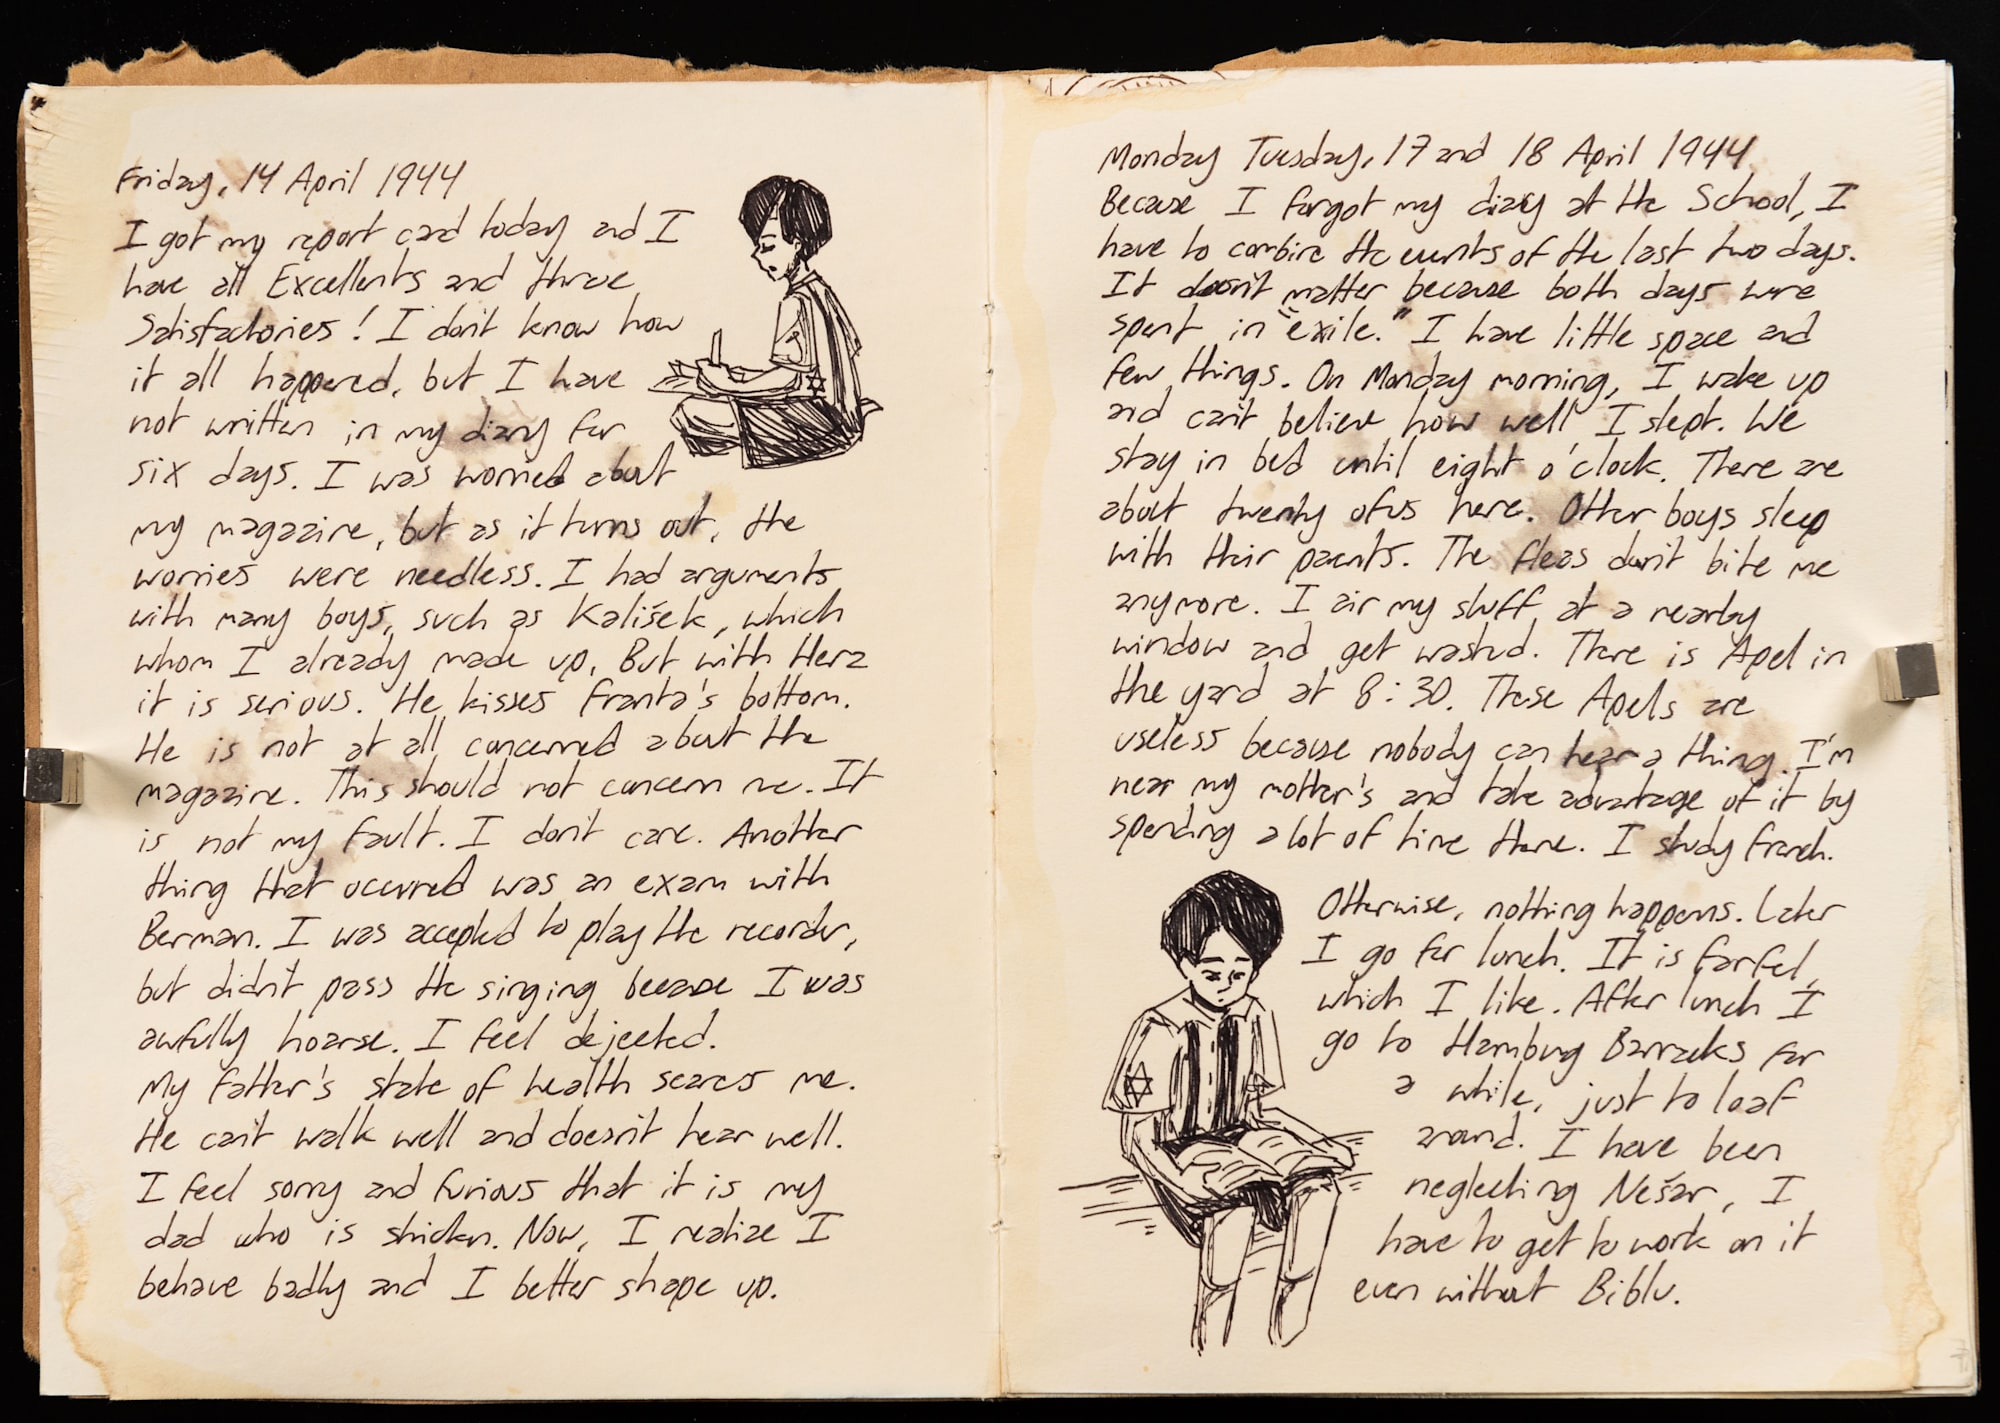 Friday, 14 April 1944
I got my report card today and I
have all Excellents and three
Satisfactories! I don't know how
it all happened, but I have
not written in my diary for
six days. I was worried about
my magazine, but as it turns out, the
worries were needless. I had arguments
with many boys, such as Kališek, which
whom I already made up. But with Herz
it is serious. He kisses Franta's bottom.
He is not at all concerned about the
magazine. This should not concern me. It
is not my fault. I don't care. Another
thing that occurred was an exam with
Berman. I was accepted to play the recorder,
but didn't pass the singing because I was
awfully hoarse. I feel dejected.
My father's state of health scares me.
He can't walk well and doesn't hear well.
I feel sorry and furious that it is my
dad who is stricken. Now, I realize I
behave badly and I better shape up.
Monday Tuesday, 17 and 18 April 1944
Because I forgot my diary at the School, I
have to combine the events of the last two days.
It doesn't matter because both days were
spent in "exile." I have little space and
few things. On Monday morning, I wake up
and can't believe how well I slept. We
stay in bed until eight o'clock. There are
about twenty of us here. Other boys sleep
with their parents. The fleas don't bite me
anymore. I air my stuff at a nearby
window and get washed. There is Apel in
the yard at 8:30. These Apels are
useless because nobody can hear a thing. I'm
near my mother's and take advantage of it by
spending a lot of time there. I study French.
Otherwise, nothing happens. Later
I go for lunch. It is farfel,
which I like. After lunch I
go to Hamburg Barracks for
a while, just to loaf
around. I have been
neglecting Nešar, I
have to get to work on it
even without Biblu.